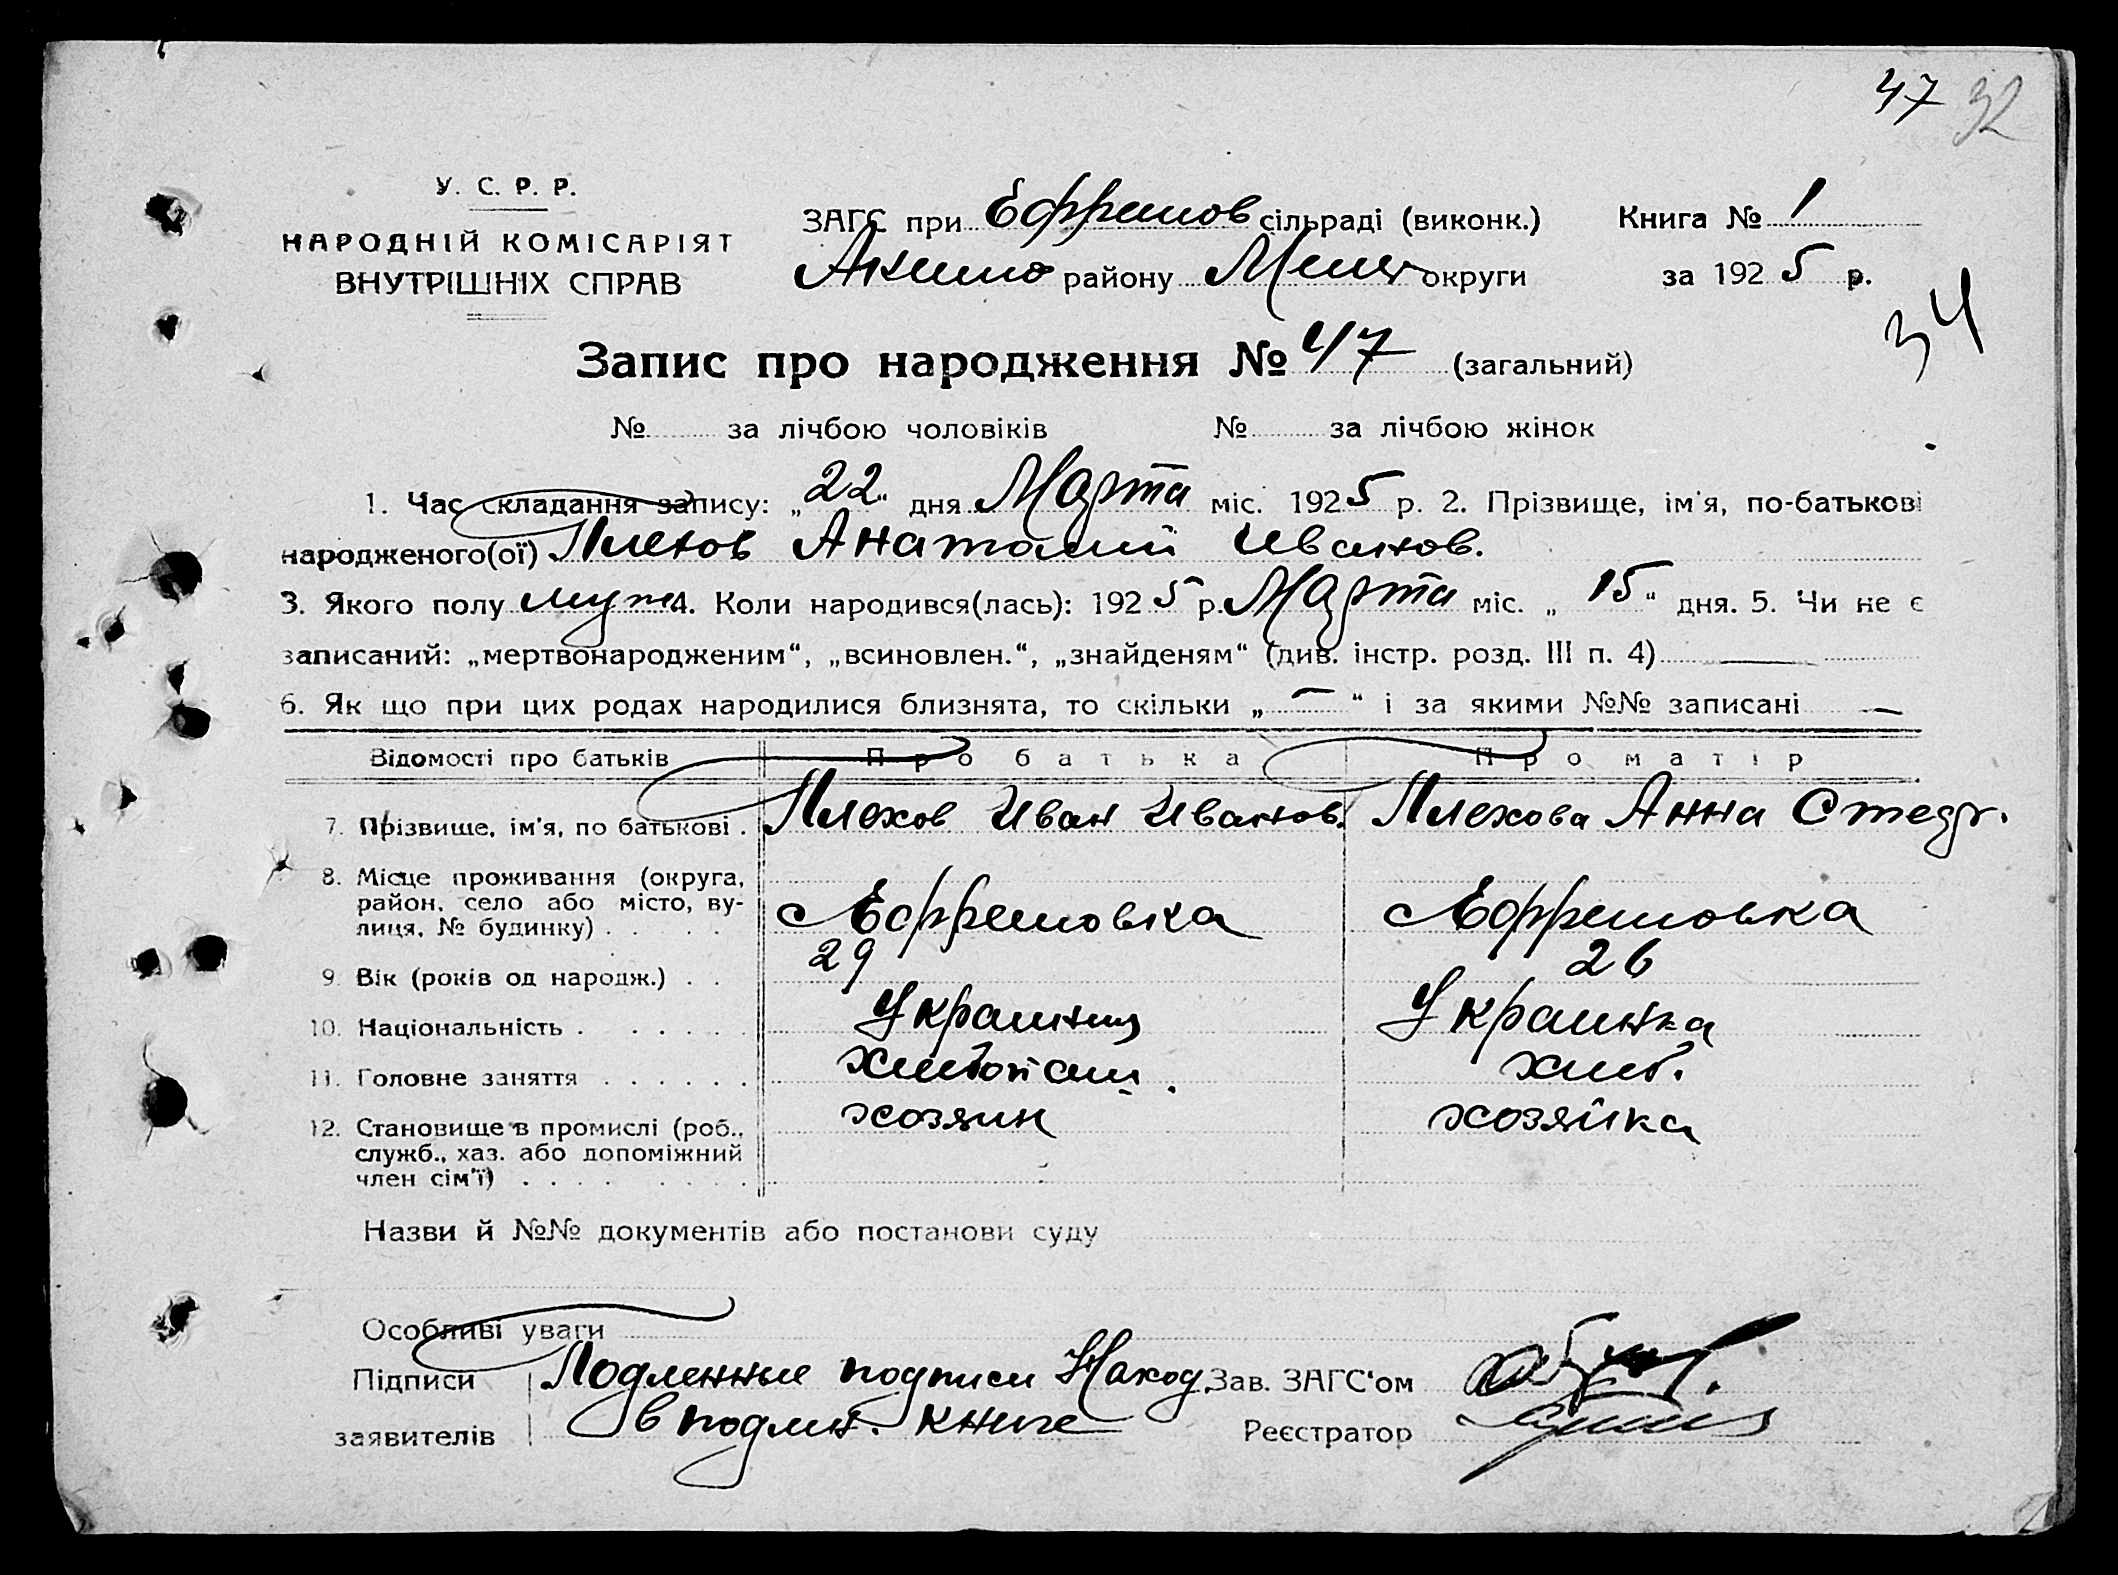 47 32
У. С. Р. Р.
НАРОДНІЙ КОМІСАРІЯТ
ВНУТРІШНІХ СПРАВ
ЗАГС при Ефремов сільраді (виконк.) Книга № 1
Акимо району Мелит округи за 1925 р.
34
Запис про народження № 47 (загальний)
№ за лічбою чоловіків № за лічбою жінок
1. Час складання запису: „22" дня Марта міс. 1925 р. 2. Прізвище, ім'я, по-батькові
народженого(ої) Плехов Анатолий Иванов.
3. Якого полу муж 4. Коли народився(лась): 1925 р. Марта міс. „15" дня. 5. Чи не є
записаний: „мертвонародженим“, „всиновлен.“, „знайденям“ (див. інстр. розд. III п. 4) —
6. Як що при цих родах народилися близнята, то скільки „—“ і за якими №№ записані —
Відомості про батьків Про батька Про матір
7. Прізвище, ім'я, по батькові . Плехов Иван Иванов. Плехова Анна Стедр.
8. Місце проживання (округа,
район, село або місто, ву-
лиця, № будинку) . . . . с Ефремовка с Ефремовка
9. Вік (років од народж.) . . 29 26
10. Національність . . . . . Украинец Украинка
11. Головне заняття . . . . . . хлебопаш. хлеб.
12. Становище в промислі (роб., хозяин хозяйка
служб., хаз. або допоміжний
член сім'ї) . . . . . . . .
Назви й №№ документів або постанови суду
Особливі уваги
Підписи Подленные подписи Наход. Зав. ЗАГС'ом
заявителів в подлин. книге Реєстратор